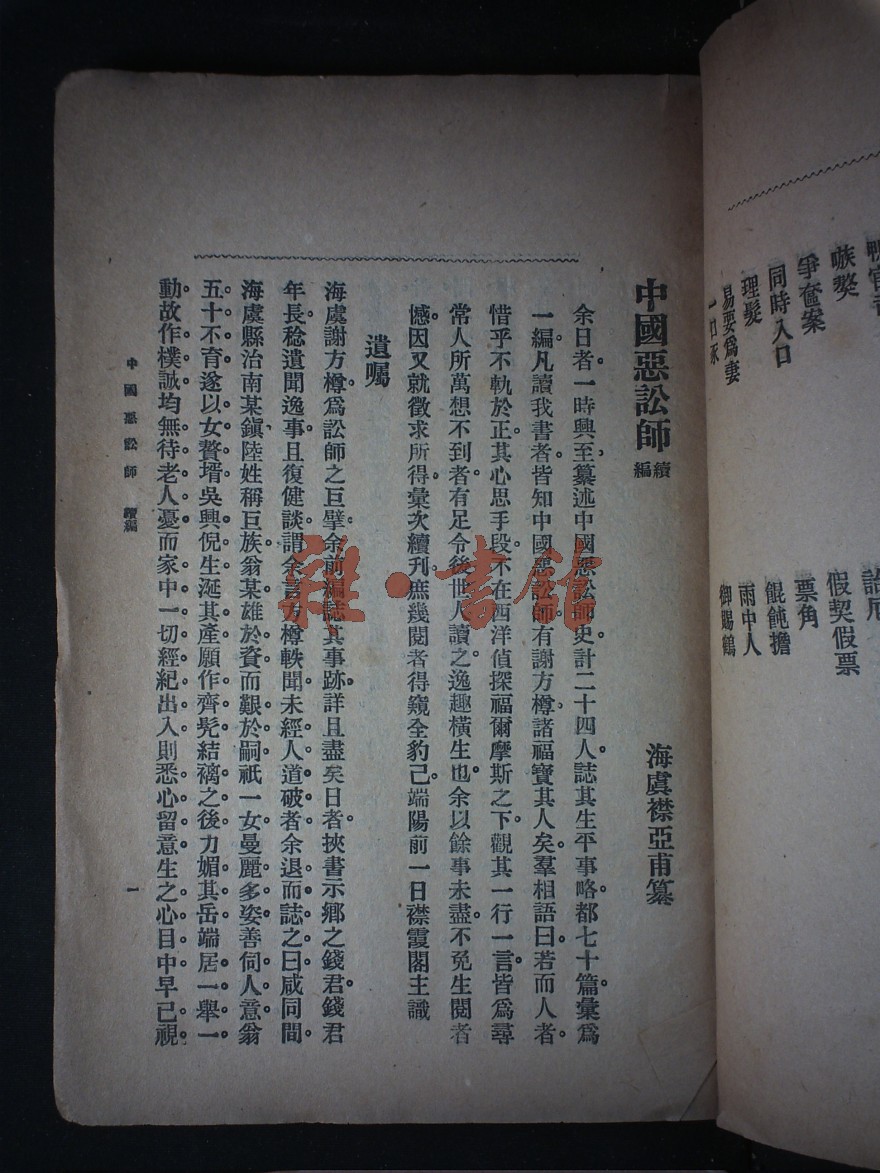 中國惡訟師續編
海虞襟亞甫纂
余日者一時興至纂述中國惡訟師史計二十四人誌其生平事略都七十篇彙爲
一編凡讀我書者皆知中國惡訟師有謝方樽諸福寶其人矣羣相語曰若而人者
惜乎不軌於正其心思手段不在西洋偵探福爾摩斯之下觀其一行一言皆爲尋
常人所萬想不到者有足令後世人讀之逸趣橫生也余以餘事未盡不免生閱者
憾因又就徵求所得彙次續刋庶幾閱者得窺全豹己端陽前一日襟霞閣主識
遺囑
海虞謝方樽爲訟師之巨擘余前編誌其事跡詳且盡矣日者挾書示鄉之錢君錢君
年長稔遺聞逸事且復健談謂余言方樽軼聞未經人道破者余退而誌之曰咸同間
海虞縣治南某鎭陸姓稱巨族翁某雄於資而艱於嗣祇一女曼麗多姿善伺人意翁
五十不育遂以女贅壻吳興倪生涎其產願作齊髡結褵之後力媚其岳端居一舉一
動故作樸誠均無待老人憂而家中一切經紀出入則悉心留意生之心目中早已視
中國惡訟師 續編
一
嗾獒
爭奩案
同時入口
理髮
易妻爲妻
假契假票
票角
餛飩擔
雨中人
御賜鶴
雜·書館